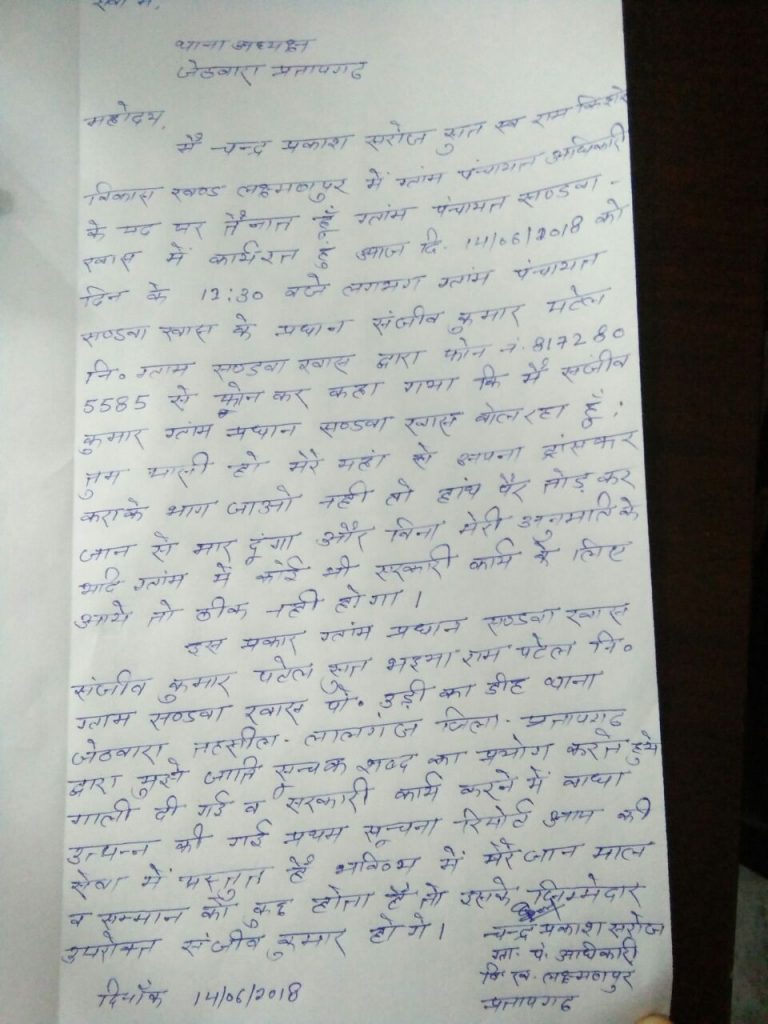 सेवा में,
थाना अध्यक्ष
जेठवारा प्रतापगढ
महोदय,
मै चन्द्र प्रकाश सरोज सुत स्व राम किशोर
विकास खण्ड लक्ष्मणपुर में ग्राम पंचायत अधिकारी
के पद पर तैनात हूँ ग्राम पंचायत सण्डवा-
खास में कार्यरत हुं आज दि. 14/06/2018 को
दिन के 12:30 बजे लगभग ग्राम पंचायत
सण्डवा खास के प्रधान संजीव कुमार पटेल
नि० ग्राम सण्डवा खास द्वारा फोन नं. 817280
5585 से फोन कर कहा गया कि मैं संजीव
कुमार ग्राम प्रधान सण्डवा खास बोल रहा हूँ।
तुम पासी हो मेरे यहां से अपना ट्रांसफर
कराके भाग जाओ नही तो हांथ पैर तोड़ कर
जान से मार दूंगा और बिना मेरी अनुमति के
यदि ग्राम में कोई भी सरकारी कार्य के लिए
आये तो ठीक नही होगा।
इस प्रकार ग्राम प्रधान सण्डवा खास
संजीव कुमार पटेल सुत भइया राम पटेल नि०
ग्राम सण्डवा खास पो. उड़ी का डीह थाना
जेठवारा तहसील- लालगंज जिला- प्रतापगढ
द्वारा मुझे जाति सूचक शब्द का प्रयोग करते हुये
गाली दी गई व सरकारी कार्य करने में बाधा
उत्पन्न की गई प्रथम सूचना रिपोर्ट आप की
सेवा में प्रस्तुत है भविष्य में मेरे जान माल
व सम्मान को कुछ होता है तो इसके जिम्मेदार
उपरोक्त संजीव कुमार होगे।
चन्द्र प्रकाश सरोज
ग्रा. पं. अधिकारी
वि. ख. लक्ष्मणपुर
प्रतापगढ
दिनाँक 14/06/2018